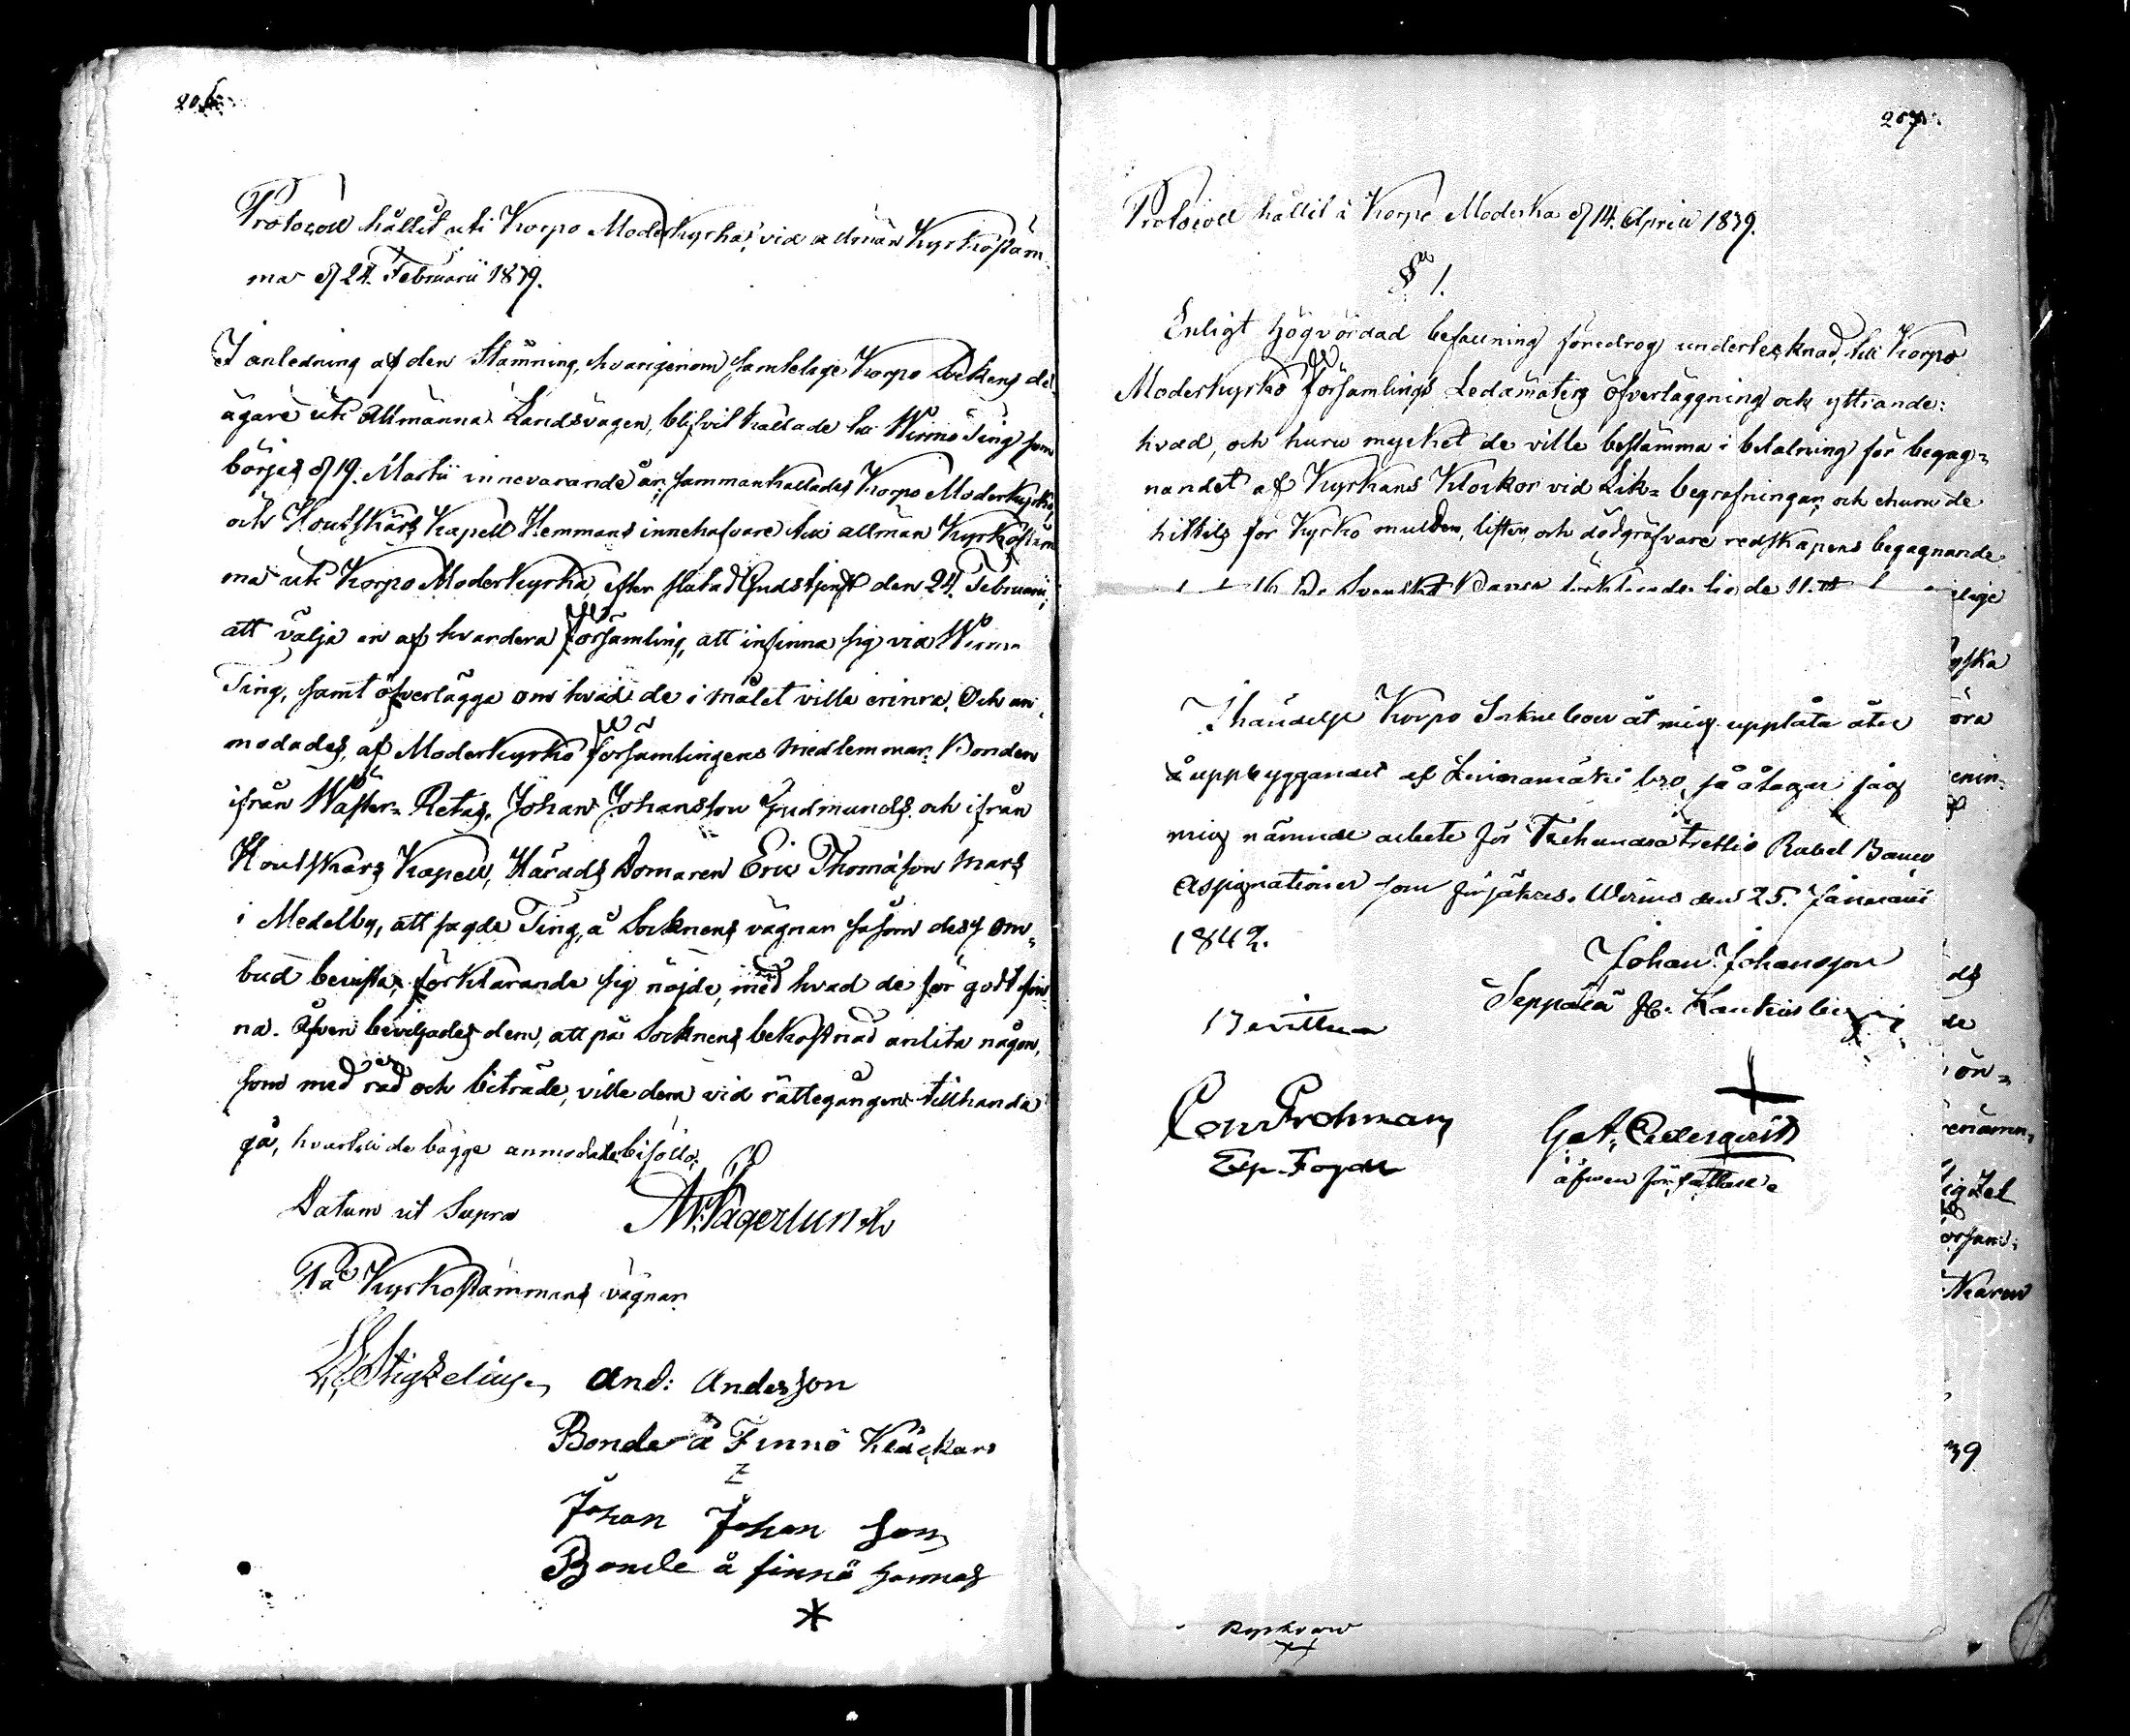 206
Protocoll hållit uti Korpo Moderkyrka, vid allmän Kyrkostäm¬
ma d 24. Februarii 1839.
I anledning af den Stämning, hvarigenom samtelige Korpo Sockens del¬
ägare uti Allmänna Landsvägen, blifvit kallade till Wirmo Ting som
börjas d 19. Martii innevarande år; sammankallades Korpo Moderkyrko
och Houtskärs Kapell Hemmans innehafvare till allmän Kyrkostäm
ma uti Korpo Moderkyrka, efter slutad Gudstjenst den 24. Februarii;
att välja en af hvardera församling, att infinna sig vid Wirmo
Ting, samt öfverlägga om hvad de i målet ville erinra. Och an¬
modades, af Moderkyrko församlingens medlemmar: Bonden
ifrån Wäster=Retais, Johan Johansson Gudmunds och ifrån
Houtskärs Kapell, Härads Domaren Eric Thomasson Mars
i Medelby, att sagde Ting, å Socknens vägnar såsom dess om¬
bud bevista, förklarande sig nöjde, med hvad de för godt fin
na. Äfven beviljades dem, att på Socknens bekostnad anlita någon,
som med råd och biträde, ville dem vid rättegången tillhanda
gå, hvartill de bägge anmodade biföllo.
Datum ut Supra
På Kyrkostämmans vägnar
And: Andersson
Bonde å Finnö Kläckars
Johan Johan son
Bonde å finnö
207
Protocoll hållit i Korpo Moderka d 14. April 1839.
§ 1.
Enligt Högvördad befallning föredrog undertecknad, till Korpo
Moderkyrko församlings Ledamöters öfverläggning och yttrande:
hvad, och huru mycket de ville bestämma i betalning för begag=
nandet af Kyrkans Klockor vid Lik=begrafningar, och churu de
hittils för Kyrko mullen, liften och dödgräfvare redskapens begagnande
I händelse Korpo Sockneboer åt mig upplåta åter
uppbyggandet af bro, så åtager jag
mig nämnde arbete för Trehundra trettio Rubel Banco
Assignationer som försäkras. Wirmo den 25. Januarii
1842.
Johan Johansson
Seppälä fr.
Bevittna
Frohman
G. A. Cederqvist
äfwen författare